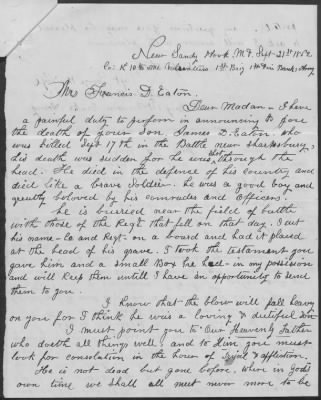 New Sandy Hook Md Sept 21st 1862
Co. K 10th Me Volunteers 1st Brig 1st Div Banks Army
Mr Francis D. Eaton.
Dear Madam – I have
a painful duty to perform in announcing to you
the death of your Son James D. Eaton, who
was killed Sept 17th in the Battle near Sharpsburg,
his death was sudden for he was through the
head. He died in the defence of his country and
died like a brave Soldier. he was a good boy and
greatly beloved by his comrades and Officers.
he is buried near the field of battle
with those of the Regt that fell on that day. I cut
his name – Co and Regt – on a board and had it placed
at the head of his grave. I took the testament you
gave him and a small Box he had – in my possession
and will keep them until I have an opportunity to send
them to you.
I know that the blow will fall heavy
on you for I think he was a loving & dutiful son
I must point you to "Our Heavenly Father
who doeth all things well, and to Him you must
look for consolation in the hour of & affliction.
He is not dead but gone before, where in God's
own time we shall all meet never more to be